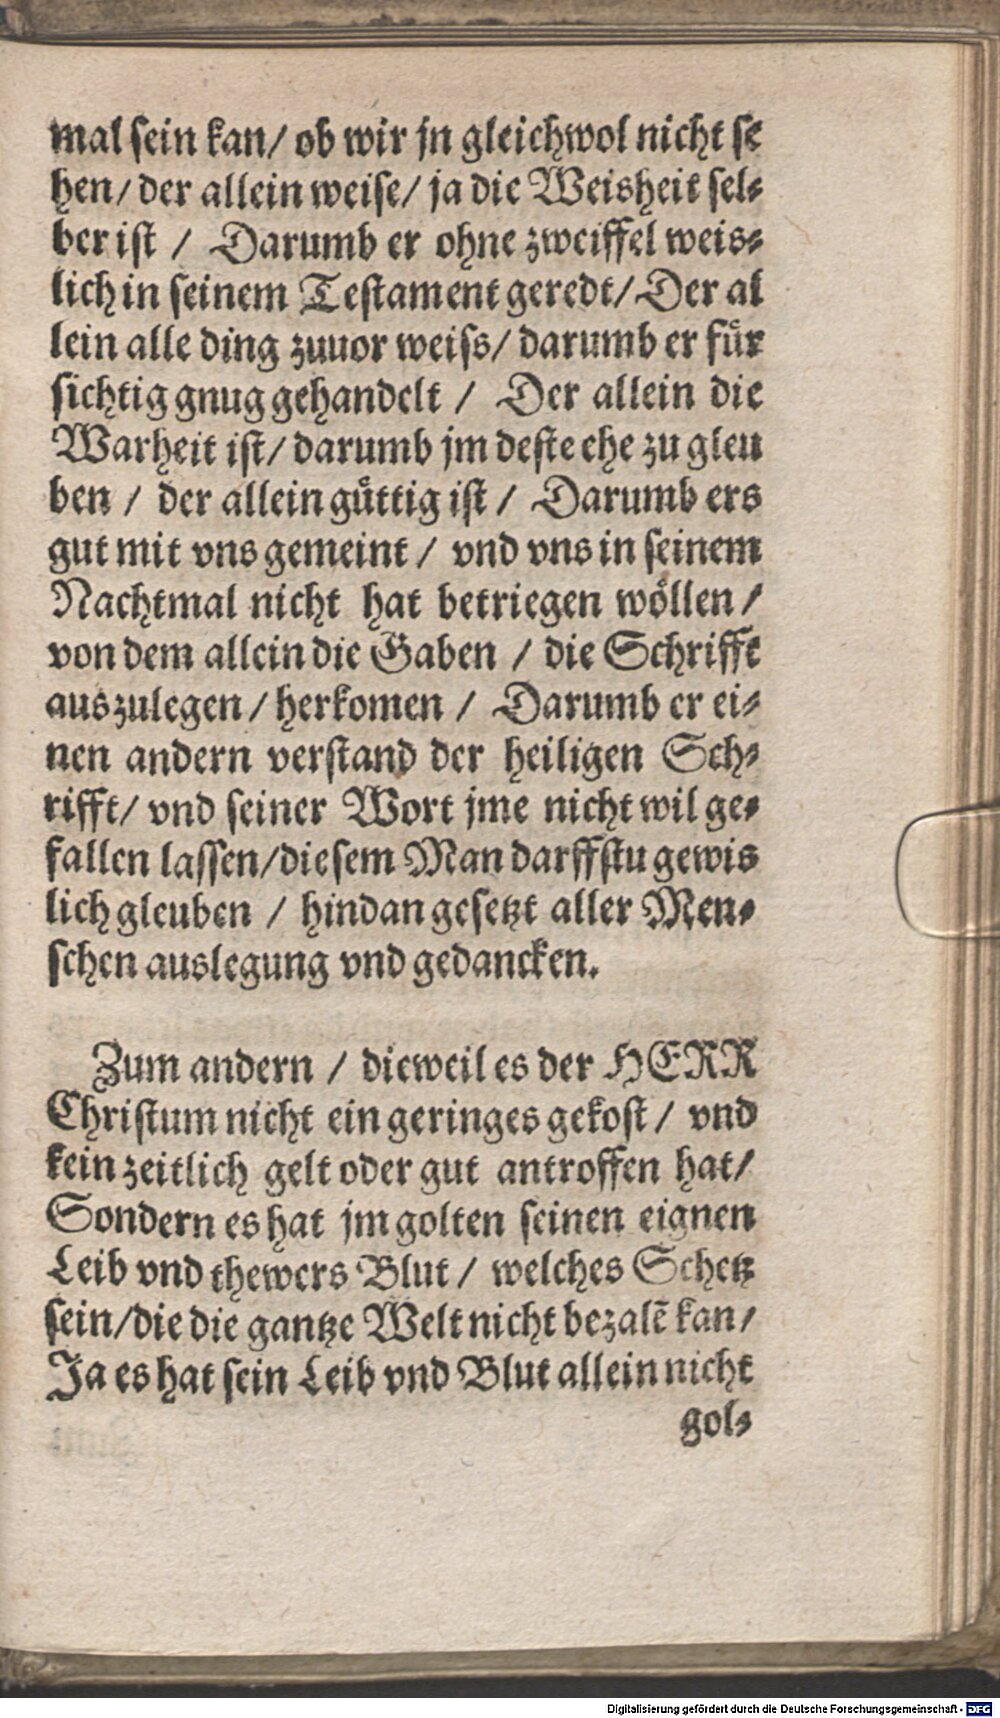 mal sein kan/ ob wir jn gleichwol nicht se
hen/ der allein weise/ ja die Weisheit sel⸗
ber ist / Darumb er ohne zweiffel weis⸗
lich in seinem Testament geredt/ Der al
lein alle ding zuuor weiss/ darumb er fuͤr
sichtig gnug gehandelt / Der allein die
Warheit ist/ darumb jm deste ehe zu gleu
ben / der allein guͤttig ist / Darumb ers
gut mit vns gemeint / vnd vns in seinem
Nachtmal nicht hat betriegen woͤllen /
von dem allein die Gaben / die Schrifft
auszulegen / herkomen / Darumb er ei⸗
nen andern verstand der heiligen Sch⸗
rifft/ vnd seiner Wort jme nicht wil ge⸗
fallen lassen/ diesem Man darffstu gewis
lich gleuben / hindan gesetzt aller Men⸗
schen auslegung vnd gedancken.
Zum andern / dieweil es der HERR
Christum nicht ein geringes gekost / vnd
kein zeitlich gelt oder gut antroffen hat/
Sondern es hat jm golten seinen eignen
Leib vnd thewers Blut / welches Schetz
sein/ die die gantze Welt nicht bezalẽ kan/
Ja es hat sein Leib vnd Blut allein nicht
gol⸗
Digitalisierung gefördert durch die Deutsche Forschungsgemeinschaft - DFG